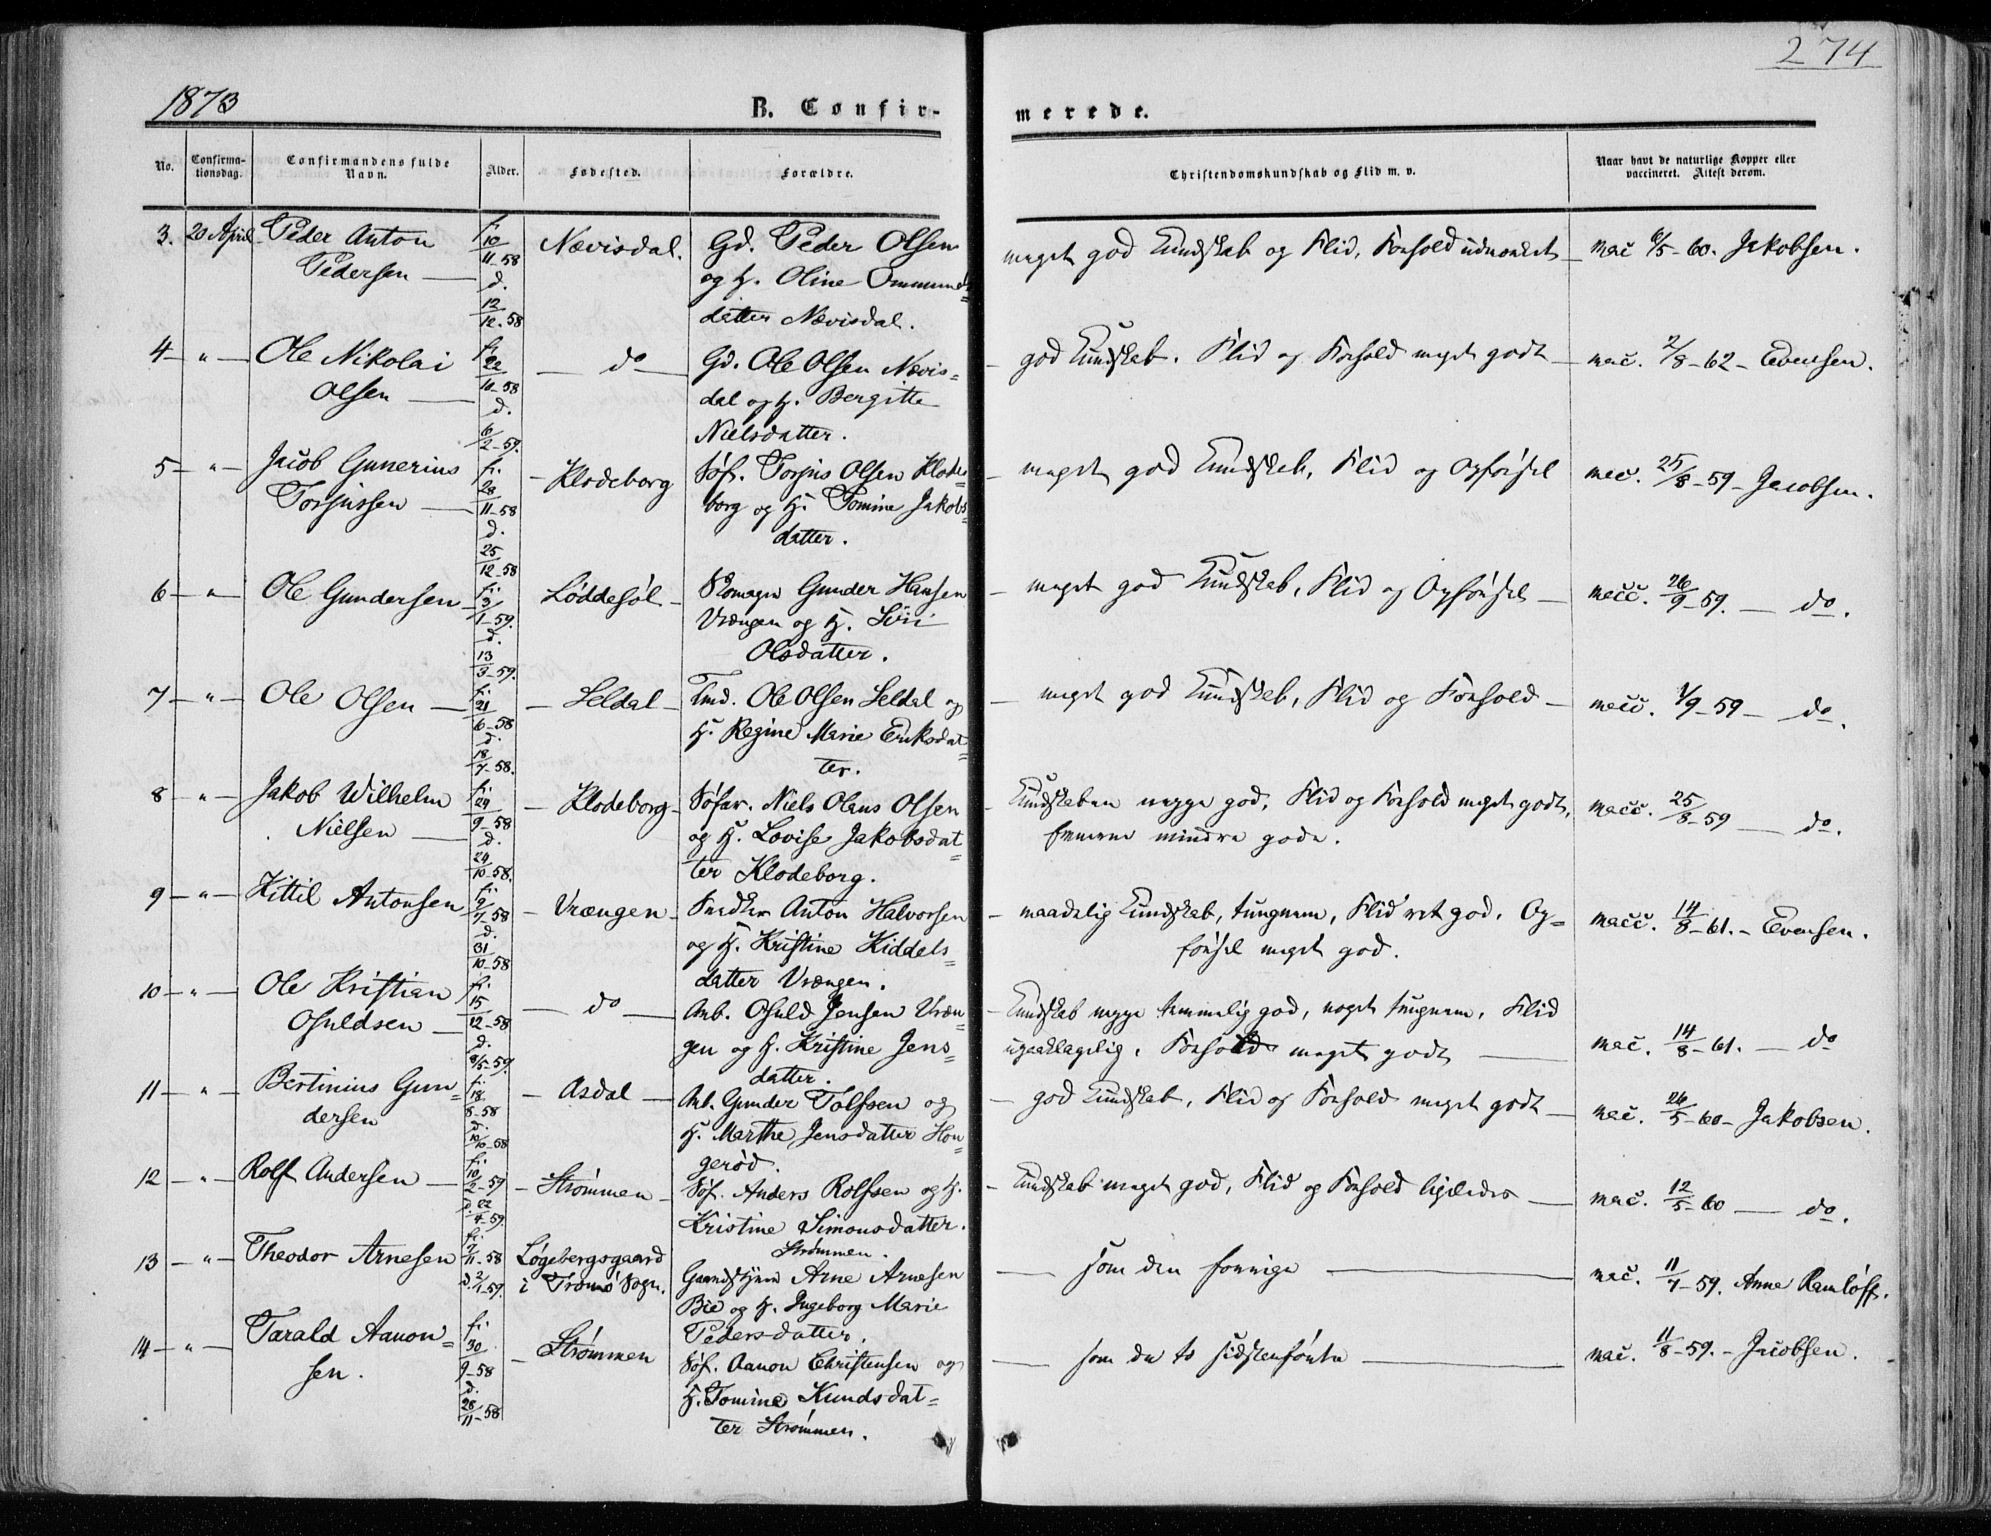 274
1873
B. Confir-
merede.
No.
Confirma-
tionsdag.
Confirmandens fulde
Navn.
Alder.
Fødested.
Forældre.
Christendomskundskab og Flid m. v.
Naar havt de naturlige Kopper eller
vaccineret. Attest derom.
3. 20 April Peder Anton Nævisdal. Gd. Peder Olsen
Pedersen og H. Oline Ommunds
datter Nævisdal.
f. 10/11-58
d. 12/12-58
meget god Kundskab og Flid, Forhold udmærket vac. 6/5-60. Jakobsen.
4 " Ole Nikolai do Gd. Ole Olsen Nævis=
Olsen dal og H. Bergitte
Nielsdatter.
f. 22/10-58
d. 6/2-59.
god Kundskab. Flid og Forhold meget godt vac. 2/8-62 - Evensen.
5 " Jacob Gunerius Klodeborg Søf. Torjus Olsen Klode=
Torjussen borg og H. Tomine Jakobs=
datter.
f. 28/11-58
d. 25/12-58
meget god Kundskab, Flid og Opførsel vac. 25/8-59 - Jacobsen.
6 " Ole Gundersen Løddesøl Skomager Gunder Hansen
Vrængen og H. Siri
Olsdatter.
f. 3/1-59.
d. 13/3-59.
meget god Kundskab, Flid og Opførsel vacc. 26/9-59. do.
7 " Ole Olsen Seldal Tmd. Ole Olsen Seldal og
H. Regine Marie Eriksdat=
ter.
f. 21/6-58
d. 18/7-58.
meget god Kundskab, Flid og Forhold vacc. 1/9-59 - do.
8 " Jakob Wilhelm Klodeborg Søfar. Niels Olaus Olsen
Nielsen og H. Lovise Jakobsdat=
ter Klodeborg.
f. 29/9-58
d. 24/10-58.
Kundskaben megge god, Flid og Forhold meget godt,
Evnerne mindre gode.
vacc. 25/8-59 do.
9 " Kittil Antonsen Vrængen Snedker Anton Halvorsen
og H. Kristine Kiddels=
datter Vrængen.
f. 9/7-58
d. 31/10-58
maadelig Kundskab, tungnem, Flid ret god. Op=
førsel meget god.
vacc. 14/8-61. - Evensen.
10 " Ole Kristian do Arb. Osuld Jensen Vræn=
Osuldsen gen og H. Kristine Jens=
datter.
f. 15/12-58
d. 8/5-59.
Kundskab megge temmelig god, noget tungnem, Flid
upaaklagelig. Forhold meget godt
vac. 14/8-61. do
11 " Bertinius Gun= Asdal Arb. Gunder Tolfsen og
dersen H. Marthe Jensdatter Hon
gerød.
f. 18/8-58
d. 10/10-58
god Kundskab, Flid og Forhold meget godt vac. 26/5-60 - Jakobsen.
12 " Rolf Andersen Strømmen Søf. Anders Rolfsen og H.
Kristine Simonsdatter.
Strømmen.
f. 10/2-59
d. 22/4-59.
Kundskab meget god, Flid og Forhold ligeledes vac. 12/5-60 do.
13 " Theodor Arnesen Løgebergsgaard
i Tromø Sogn.
Arne Arnesen
Bie og H. Ingeborg Marie
Pedersdatter.
f. 7/11-58
d. 2/1-59.
som den forrige vac. 11/7-59. Anne Ramløff.
14 " Tarald Aanon= Strømmen Søf. Aanon Christensen og
sen. H. Tomine Knudsdat=
ter Strømmen.
f. 30/9-58
d. 28/11-58
som de to sidstanførte vac. 11/8-59. - Jacobsen.